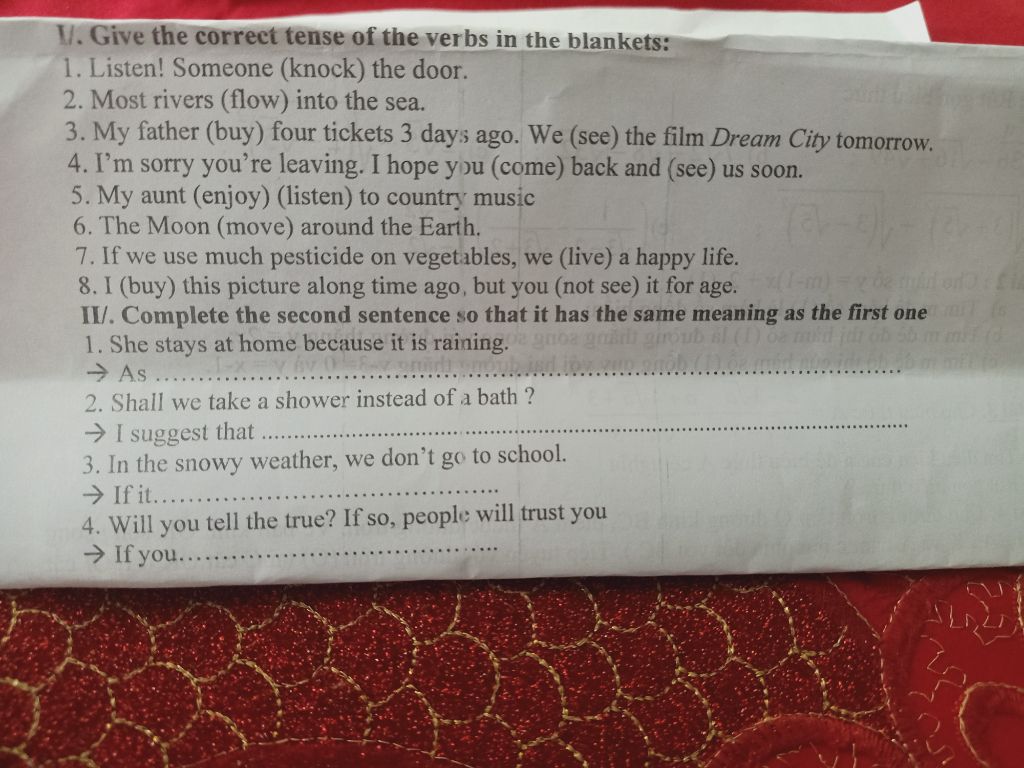 I/. Give the correct tense of the verbs in the blankets:
1. Listen! Someone (knock) the door.
2. Most rivers (flow) into the sea.
3. My father (buy) four tickets 3 days ago. We (see) the film Dream City tomorrow.
4. I'm sorry you're leaving. I hope you (come) back and (see) us soon.
5. My aunt (enjoy) (listen) to country music
6. The Moon (move) around the Earth.
7. If we use much pesticide on vegetables, we (live) a happy life.
8. I (buy) this picture along time ago, but you (not see) it for age.
II/. Complete the second sentence so that it has the same meaning as the first one
1. She stays at home because it is raining.
→ As ........................................................................
2. Shall we take a shower instead of a bath ?
→ I suggest that ........................................................................
3. In the snowy weather, we don't go to school.
→ If it........................................
4. Will you tell the true? If so, people will trust you
→ If you........................................